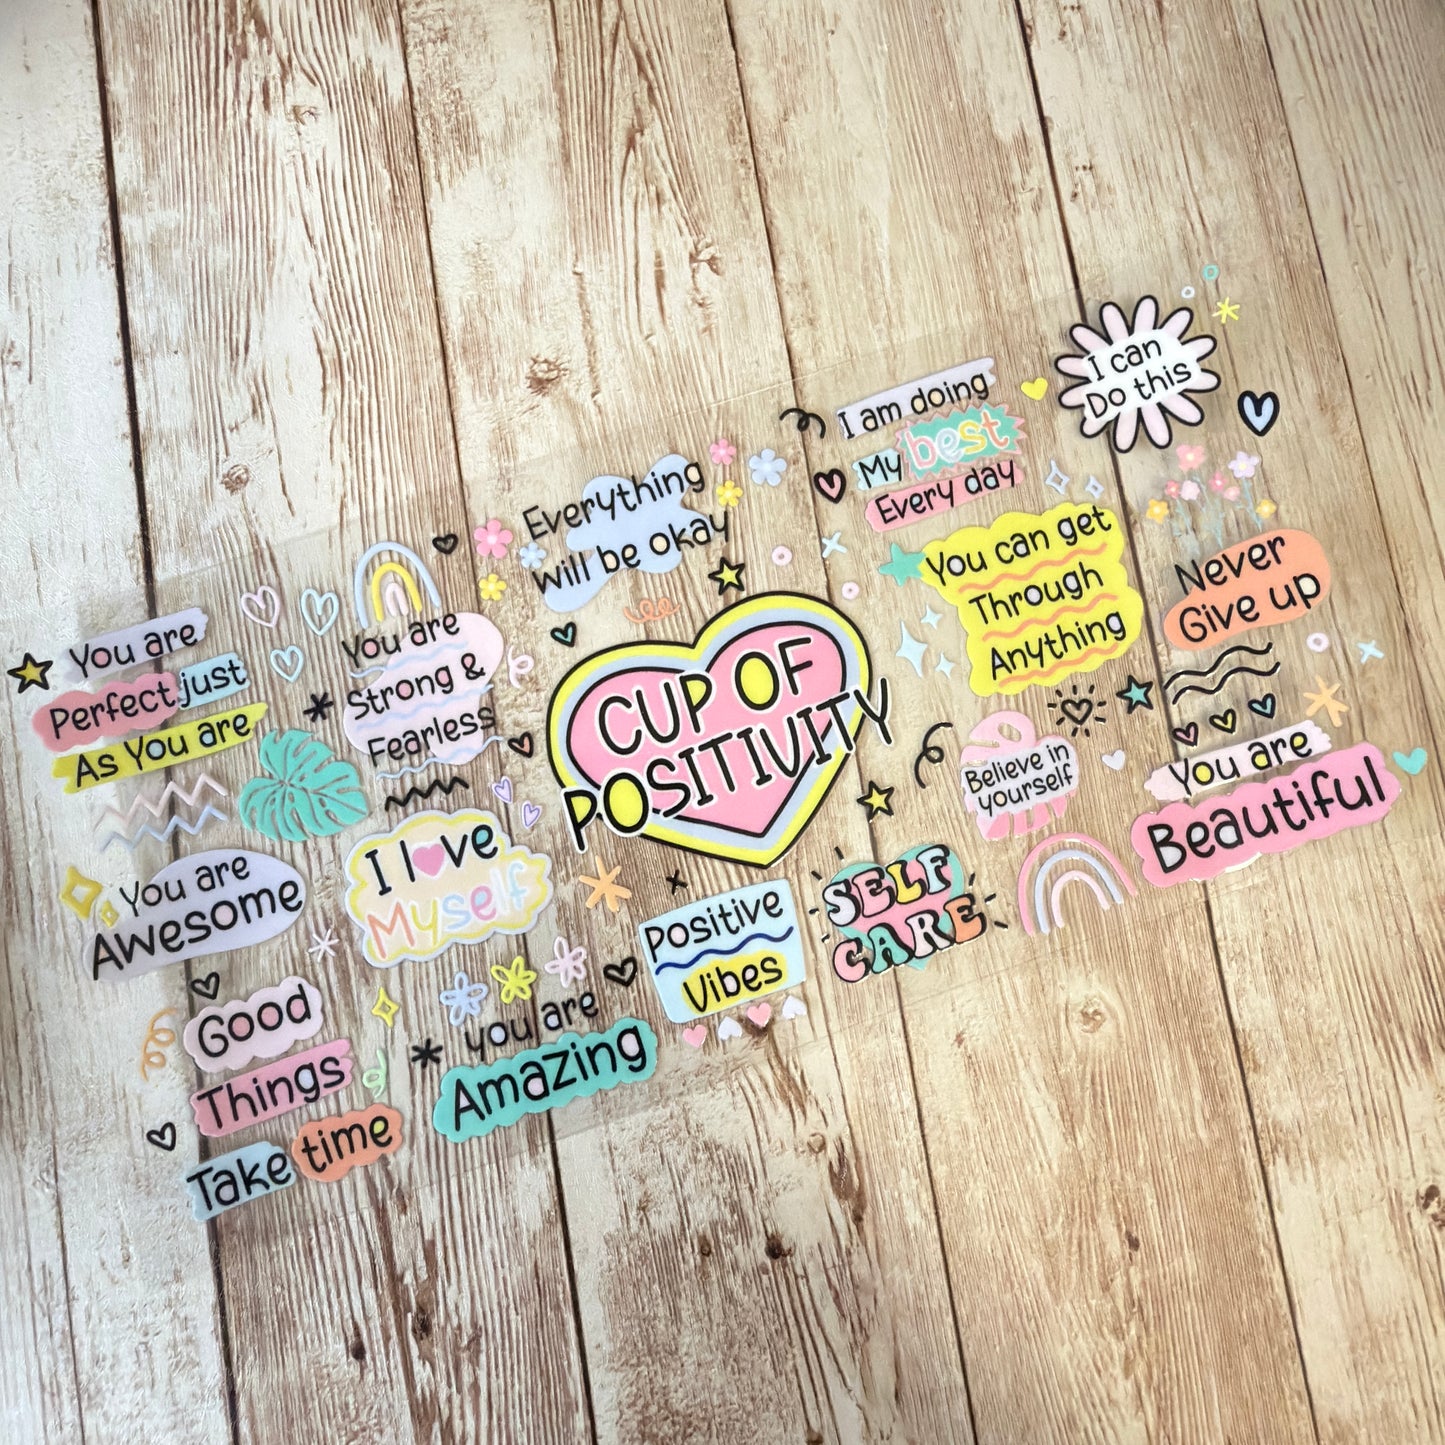 You are
Perfect just
As You are
You are
Strong &
Fearless
Everything
will be okay
I am doing
My best
Every day
I can
Do this
You can get
Through
Anything
Never
Give up
CUP OF
POSITIVITY
Believe in
yourself
You are
Beautiful
You are
Awesome
I love
Myself
Positive
Vibes
SELF
CARE
Good
Things
Take time
you are
Amazing